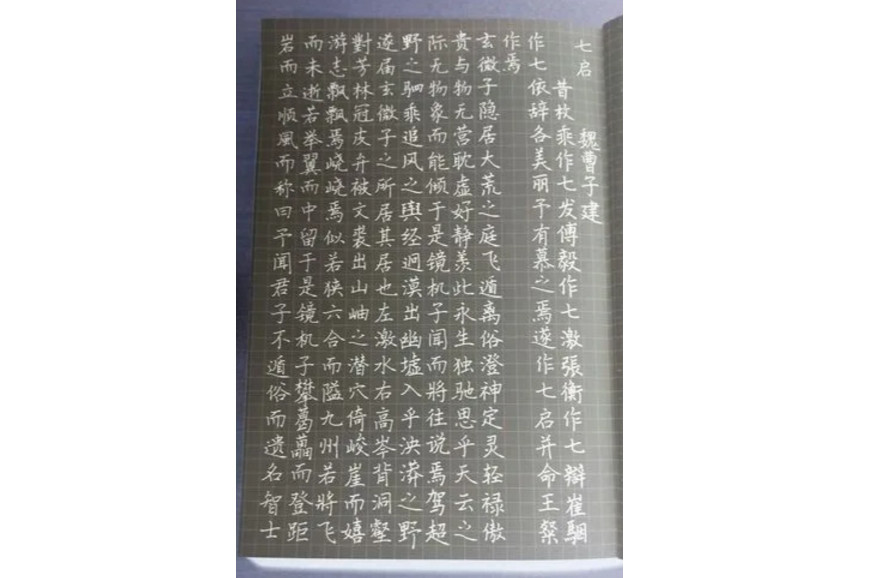 七启
魏曹子建
昔枚乘作七发傅毅作七激張衡作七辯崔駰
作七依辞各美丽予有慕之焉遂作七启并命王粲
作焉
玄微子隐居大荒之庭飞遁离俗澄神定灵轻禄傲
贵与物无营耽虚好静羡此永生独驰思乎天云之
际无物象而能倾于是镜机子闻而將往说焉驾超
野之驷乘追风之舆经迥漠出幽墟入乎泱漭之野
遂届玄微子之所居其居也左激水右高岑背洞壑
對芳林冠皮弁被文裘出山岫之潜穴倚峻崖而嬉
游志飘飘焉峣峣焉似若狭六合而隘九州若將飞
而未逝若举翼而中留于是镜机子攀葛藟而登距
岩而立順風而称曰予闻君子不遁俗而遗名智士